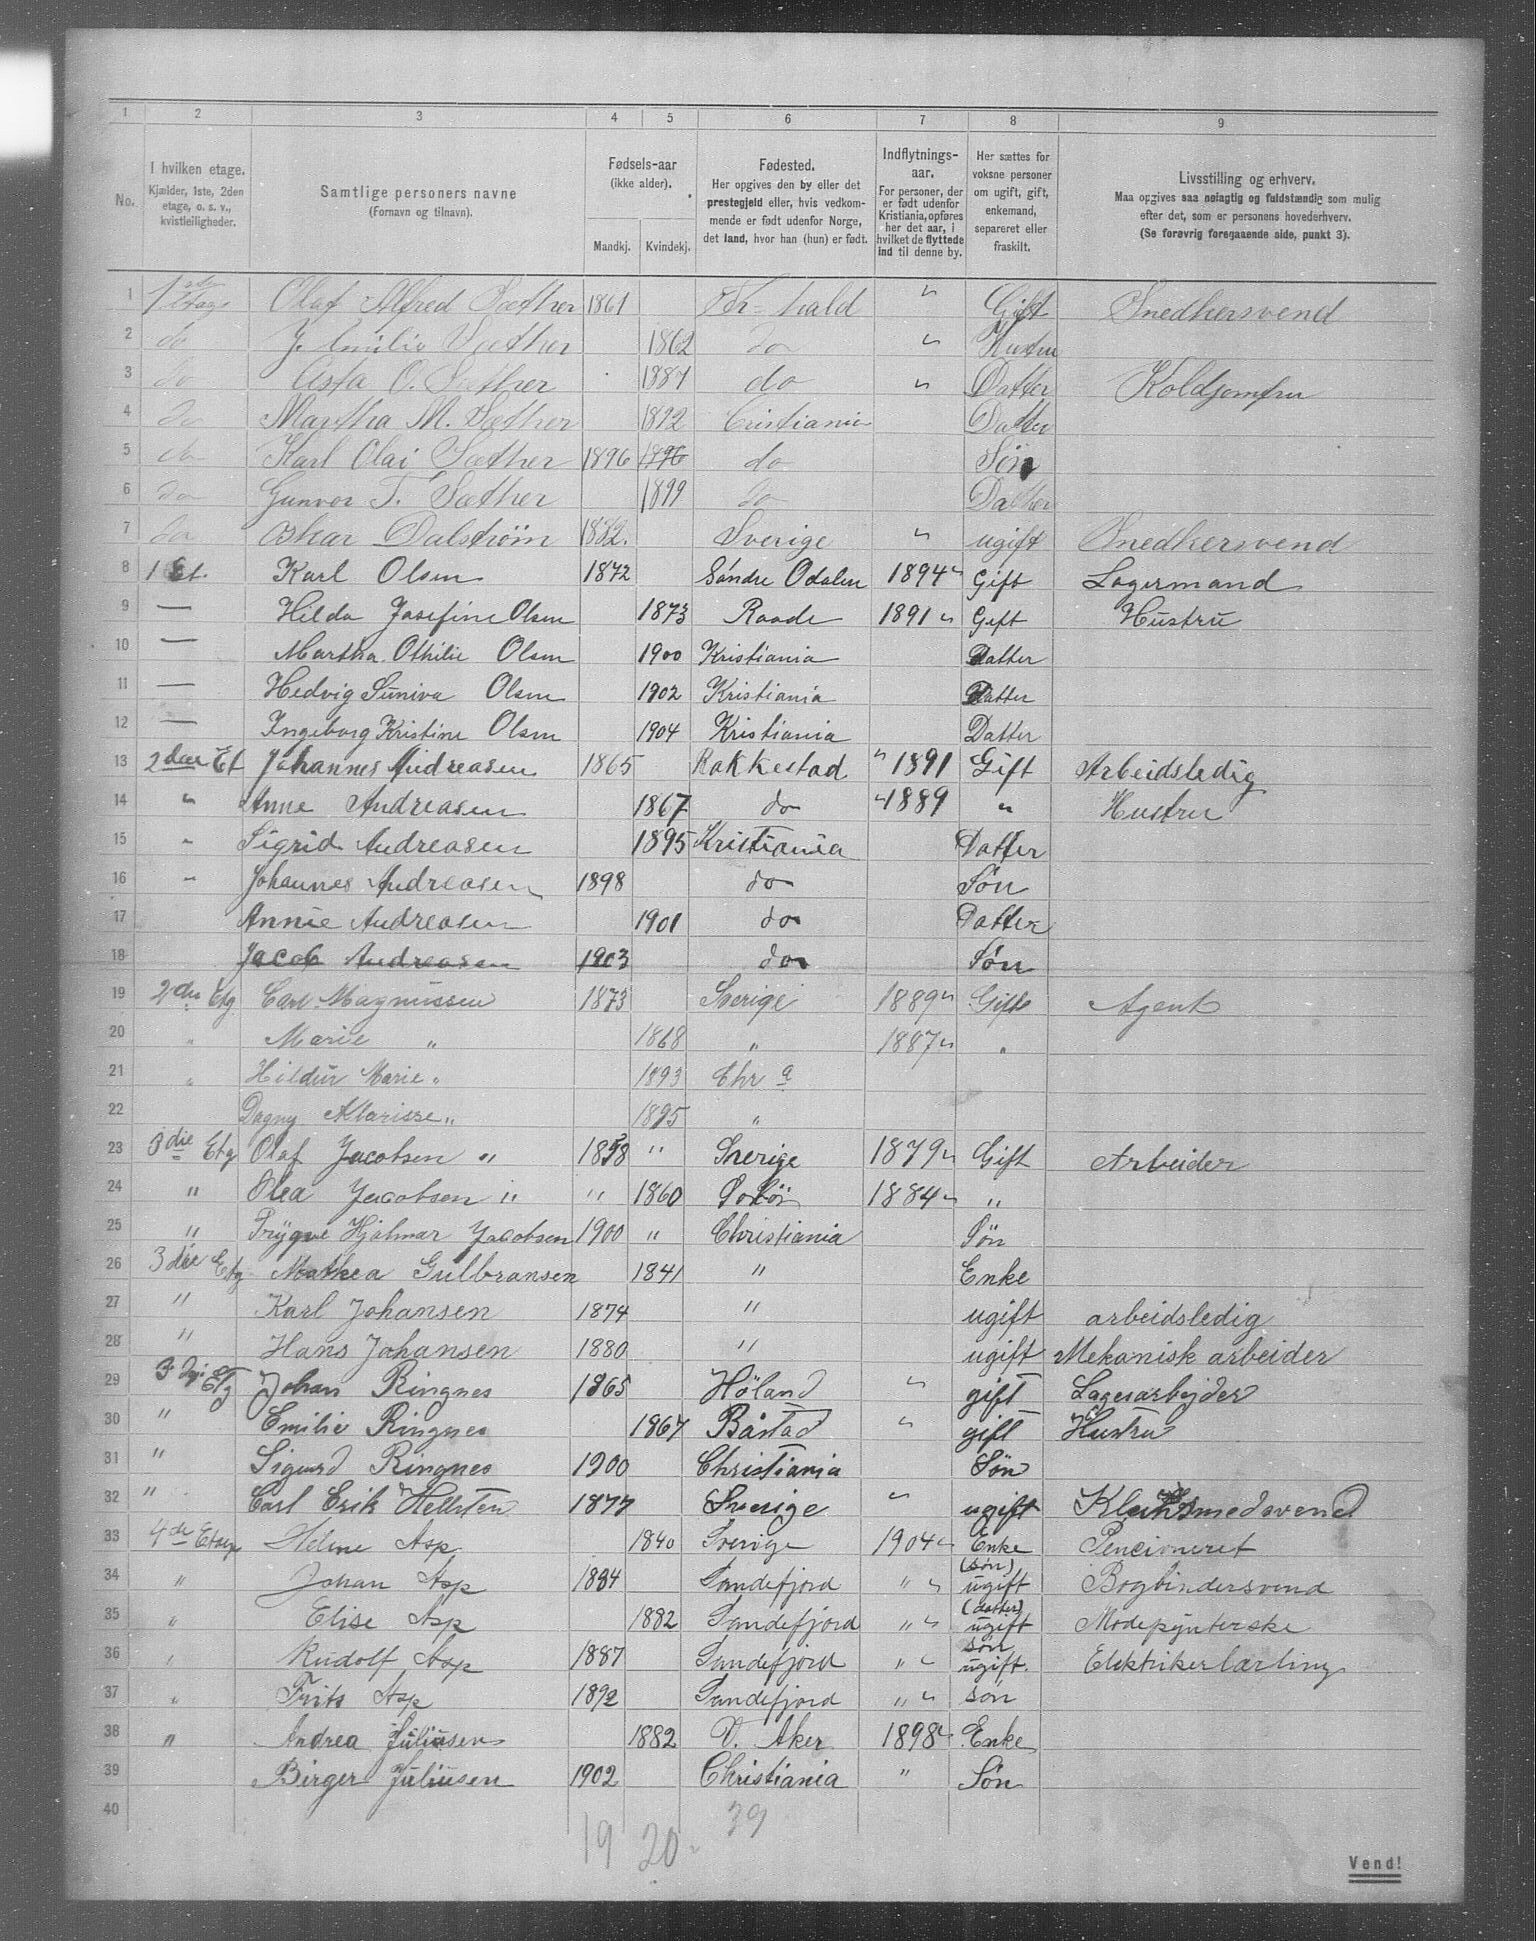 1 2 3 4 5 6 7 8 9
No.
I hvilken etage.
Kjælder, 1ste, 2den
etage, o. s. v.,
kvistleiligheder.
Samtlige personers navne
(Fornavn og tilnavn).
Fødsels-aar
(ikke alder).
Mandkj. Kvindekj.
Fødested.
Her opgives den by eller det
prestegjeld eller, hvis vedkom-
mende er født udenfor Norge,
det land, hvor han (hun) er født.
Indflytnings-
aar.
For personer, der
er født udenfor
Kristiania, opføres
her det aar, i
hvilket de flyttede
ind til denne by.
Her sættes for
voksne personer
om ugift, gift,
enkemand,
separeret eller
fraskilt.
Livsstilling og erhverv.
Maa opgives saa nøiagtig og fuldstændig som mulig
efter det, som er personens hovederhverv.
(Se forøvrig foregaaende side, punkt 3).
1 1ste Etage Olaf Alfred Sæther 1861 Fr-hald " Gift Snedkersvend
2 do J. Emilie Sæther 1862 do " Hustru
3 do Asta O. Sæther 1887 do " Datter Koldjomfru
4 do Martha M. Sæther 1892 Cristiania Datter
5 do Karl Olai Sæther 1896 1896 do Søn
6 do Gunvor T. Sæther 1899 do Datter
7 do Oskar Dalstrøm 1882. Sverige " ugift Snedkersvend
8 1 Et. Karl Olsen 1872 Søndre Odalen 1894 " Gift Lagermand
9 — Hilda Josefine Olsen 1873 Raade 1891 " Gift Hustru
10 — Martha Othilie Olsen 1900 Kristiania Datter
11 — Hedvig Suniva Olsen 1902 Kristiania Datter
12 — Ingeborg Kristine Olsen 1904 Kristiania Datter
13 2den Et Johannes Andreasen 1865 Rakkestad " 1891 Gift Arbeidsledig
14 " Anne Andreasen 1867 do " 1889 " Hustru
15 " Sigrid Andreasen 1895 Kristiania Datter
16 " Johannes Andreasen 1898 do Søn
17 Annie Andreasen 1901 do Datter
18 Jacob Andreasen 1903 do Søn
19 2den Etg Carl Magnussen 1873 Sverige 1889 " Gift Agent
20 " Marie " 1868 " 1887 " "
21 " Hildur Marie " 1893 Chr a
22 Dagny Klarisse " 1895 "
23 3die Etg Olaf Jacobsen " 1858 " Sverige 1879 " Gift Arbeider
24 " Olea Jacobsen " " 1860 Solør 1884 " "
25 " Trygve Hjalmar Jacobsen 1900 " Christiania Søn
26 3die Etg Mathea Gulbransen 1841 " Enke
27 " Karl Johansen 1874 " ugift arbeidsledig
28 " Hans Johansen 1880 " ugift Mekanisk arbeider
29 3dje Etg Johan Ringnes 1865 Höland " gift Lagerarbejder
30 " Emilie Ringnes 1867 Båstad " gift Hustru
31 " Sigurd Ringnes 1900 Christiania Søn
32 " Carl Erik Hellsten 1877 Sverige " ugift Kleinsmedsvend
33 4de Etage Helene Asp 1840 Sverige 1904 " Enke Pencioneret
34 " Johan Asp 1884 Sandefjord " " (søn) ugift Bogbindersvend
35 " Elise Asp 1882 Sandefjord " " (datter) ugift Modepynterske
36 " Rudolf Asp 1887 Sandefjord " " søn ugift. Elektrikerlærling
37 " Frits Asp 1892 Sandefjord " " søn
38 " Andrea Juliusen 1882 V. Aker 1898 " Enke
39 Birger Juliusen 1902 Christiania " Søn
40
19 20 39
Vend!